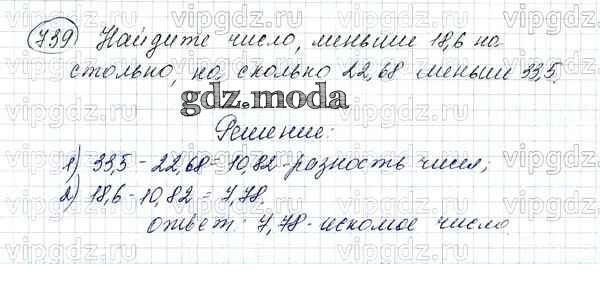 739 Найдите число, меньше 18,6 на
столько, на сколько 22,68 меньше 33,5.
gdz.moda
Решение:
1) 33,5 - 22,68 = 10,82 - разность чисел;
2) 18,6 - 10,82 = 7,78.
ответ: 7,78 - искомое число.